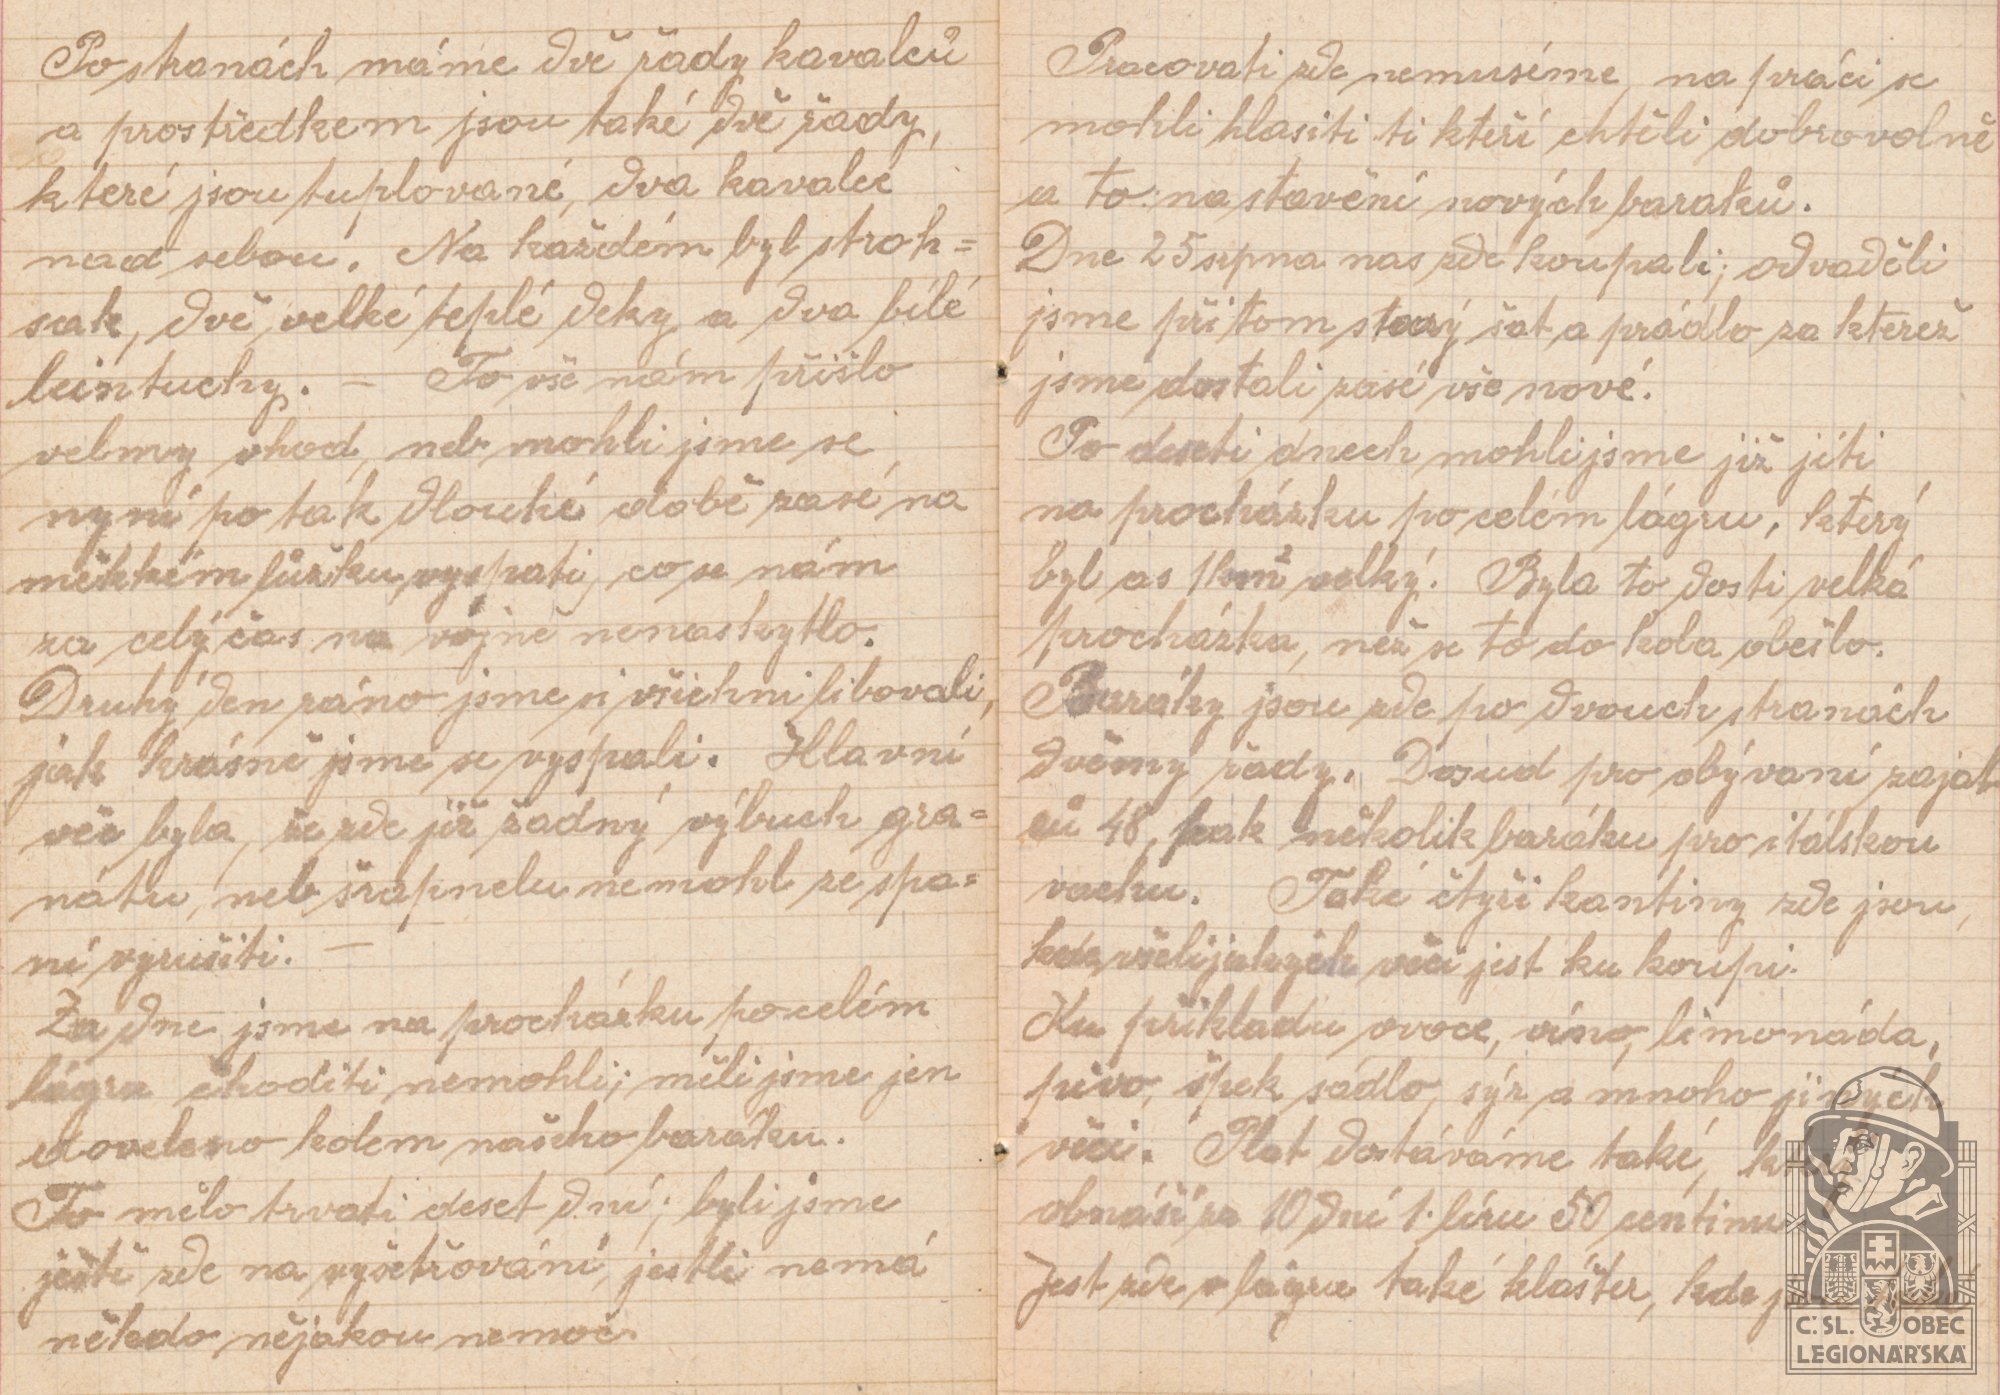 Po stranách máme dvě řady kavalců
a prostředkem jsou také dvě řady,
které jsou tuplované, dva kavalce
nad sebou. Na každém byl stroh=
sak, dvě velké teplé deky a dva bílé
leintuchy. – To vše nám přišlo
velmy vhod, neb mohli jsme se
nyní po tak dlouhé době zasé na
měkkém lůžku vyspati, co se nám
za celý čas na vojně nenaskytlo.
Druhý den ráno jsme si všichni libovali,
jak krásně jsme se vyspali. Hlavní
věc byla, že zde již žadný výbuch gra=
nátu, neb šrapnelu nemohl ze spa=
ní vyrušiti. –
Za dne jsme na procházku po celém
lágru choditi nemohli; měli jsme jen
dovoleno kolem našeho baráku.
To mělo trvati deset dní; byli jsme
ještě zde na vyšetřování, jestli nemá
někdo nějakou nemoc.
Pracovati zde nemuséme, na práci se
mohli hlasiti ti kteří chtěli dobrovolně
a to: na stavění nových baraků.
Dne 25 srpna nas zde koupali; odvaděli
jsme při tom starý šat a prádlo za kterež
jsme dostali zasé vše nové.
Po deseti dnech mohli jsme již jíti
na procházku po celém lágru, který
byl as 1 km² velký. Byla to dosti velká
procházka, než se to do kola obešlo.
Baráky jsou zde po dvouch stranách
dvěmy řady. Dosud pro obývaní zajat
ců 48, pak několik baráku pro itálskou
vachu. Také čtyři kantiny zde jsou,
kde všelijakých věcí jest ku koupi.
Ku příkladu ovoce, víno, limonáda,
pivo, špek sádlo, sýr a mnoho jiných
věcí. Plat dostáváme také,
obnáší za 10 dní 1. líru 50 centimu
Jest zde v lágru také klášter, kde
Č. SL. OBEC
LEGIONÁŘSKÁ